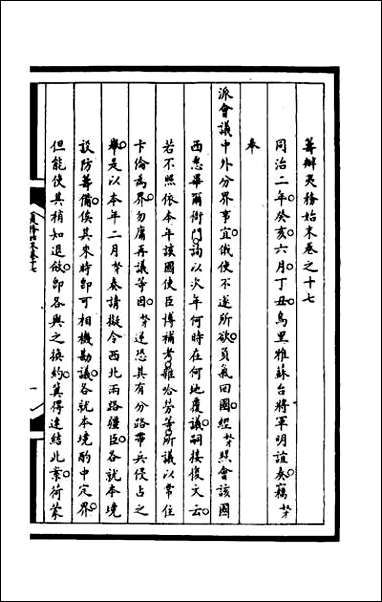 籌辦夷務始末卷之十七
同治二年癸亥六月丁丑烏里雅蘇台將軍明誼奏竊奴才
奉
派會議中外分界事宜俄使不遂所欲負氣回國經奴才照會該國
西悉畢爾衙門詢以次年何時在何地覆議嗣接復文云
若不照依本年該國使臣博補考雜哈劳等所議以常住
卡倫為界勿庸再議等因奴才逆恐其有分路帶兵侵占之
舉是以本年二月奴才奏請擬令西北兩路疆臣各就本境
設防籌備俟其來時即可相機勘議各就本境酌中定界
但能使其稍知退斂即各與之換約冀得速結此案荷蒙